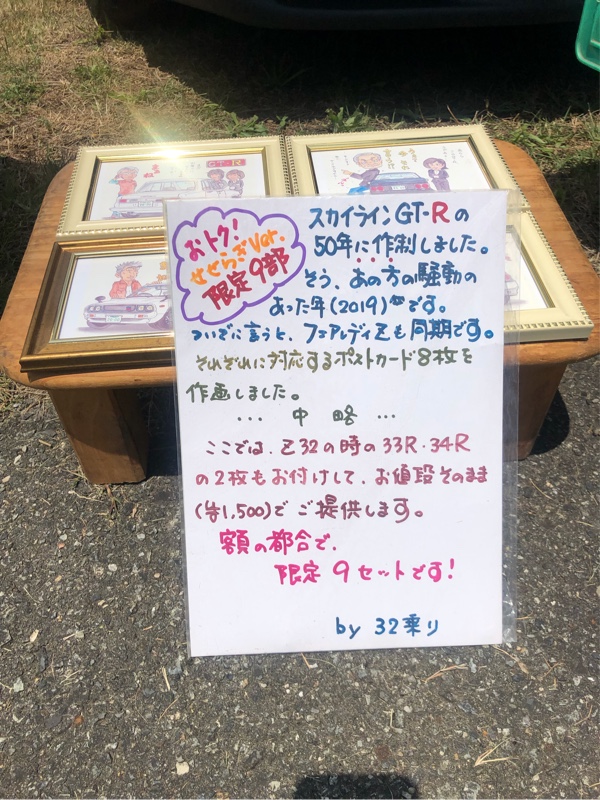 GT-R
おトク!
せせらぎVer.
限定9部
スカイラインGT-Rの
50年に作制しました。
そう、あの方の騒動の
あった年(2019)です。
ついでに言うと、フェアレディZも同期です。
それぞれに対応するポストカード8枚を
作画しました。
... 中 略 ...
ここでは、Z32の時の33R・34R
の2枚もお付けして、お値段そのまま
(¥1,500)でご提供します。
額の都合で、
限定 9セットです!
by 32乗り